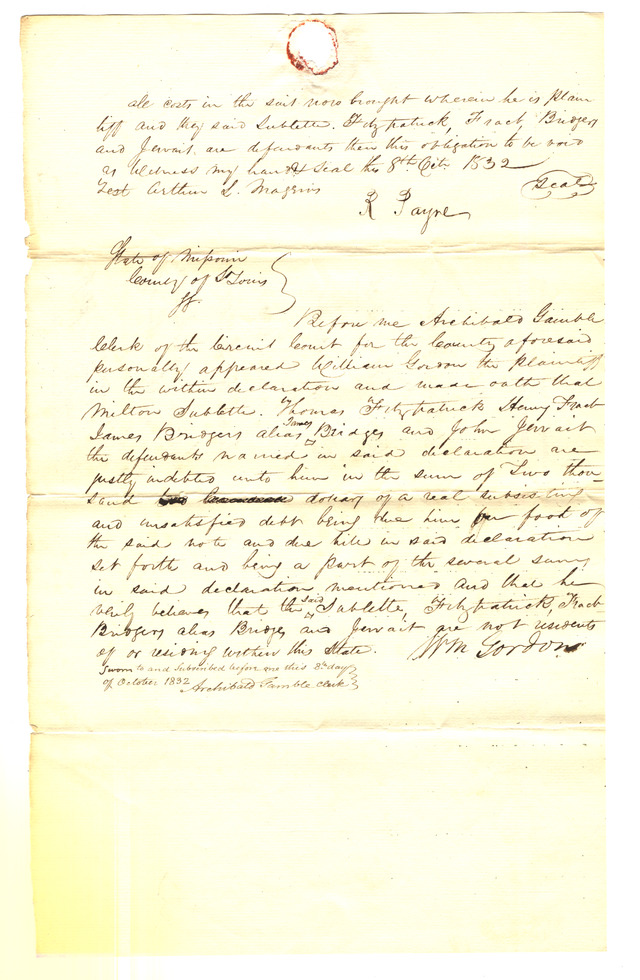 all costs in the suit now brought wherein he is plain
tiff and they said Sublette. Fitzpatrick, Fraeb, Bridgers
and Jervait. are defendants then this obligation to be void
as Witness my hand & seal this 8th Oct. 1832
Test Arthur L. Maginis
Seal
R Payne
State of Missouri
County of St Louis
Before me Archibald Gamble
Clerk of the Circuit Court for the County aforesaid
personally appeared William Gordon the plaintiff
in the within declaration and made oath that
Milton Sublette. Thomas Fitzpatrick Henry Fraeb
James Bridgers alias James Bridges and John Jervait
the defendants named in said declaration are
justly indebted unto him in the sum of Two thou-
sand dollars of a real subsisting
and unsatisfied debt being due him on foot of
the said note and due bill in said declaration
set forth and being a part of the several sums
in said declaration mentioned and that he
verily believes that the said Sublette, Fitzpatrick, Fraeb
Bridgers alias Bridges and Jervait are not residents
of or residing within this State. Wm Gordon
Sworn to and Subscribed before me this 8th day
of October 1832 Archibald Gamble Clerk